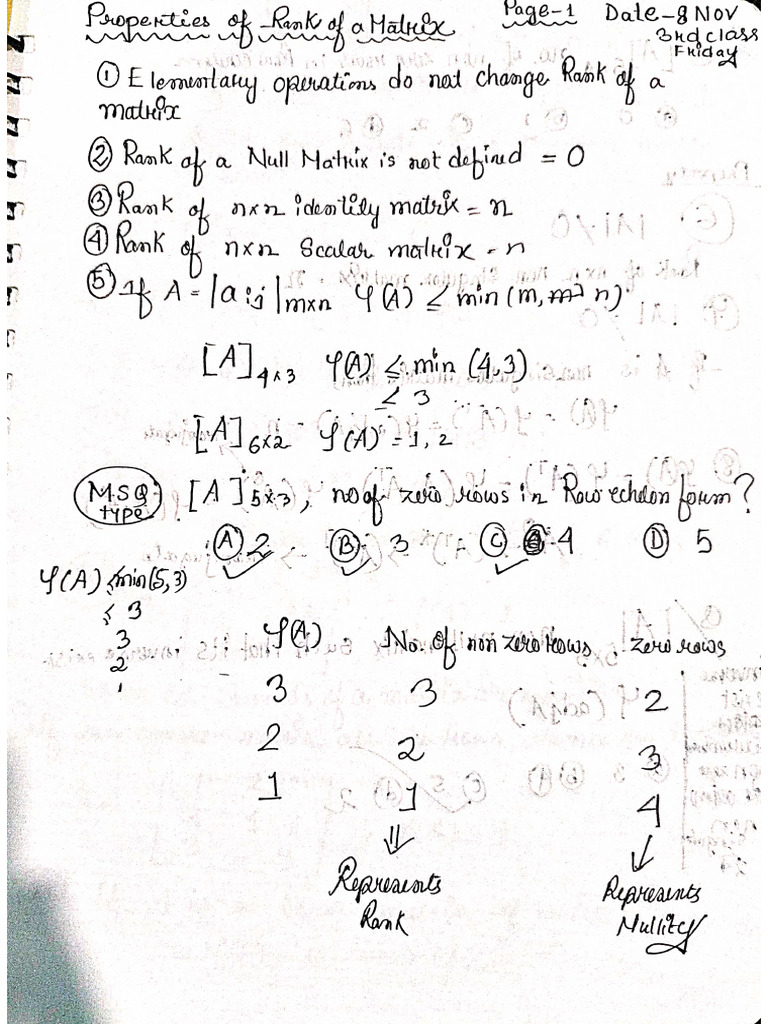 Properties of Rank of a Matrix Page-1 Date-8 Nov
3rd class
Friday
① Elementary operations do not change Rank of a
matrix
② Rank of a Null Matrix is not defined = 0
③ Rank of n×n identity matrix = n
④ Rank of n×n Scalar matrix = n
⑤ If A = |aij|m×n φ(A) ≤ min(m, n)
[A]4×3 φ(A) ≤ min (4,3)
≤ 3
[A]6×2 φ(A) = 1, 2
MSQ
type [A]5×3, no of zero rows in Row echelon form?
Ⓐ 2 Ⓑ 3 Ⓒ 4 Ⓓ 5
φ(A) ≤ min(5,3)
≤ 3
3
2
1
φ(A) No. of non zero rows zero rows
3 3 2
2 2 3
1 1 4
⇓ ↓
Represents Represents
Rank Nullity